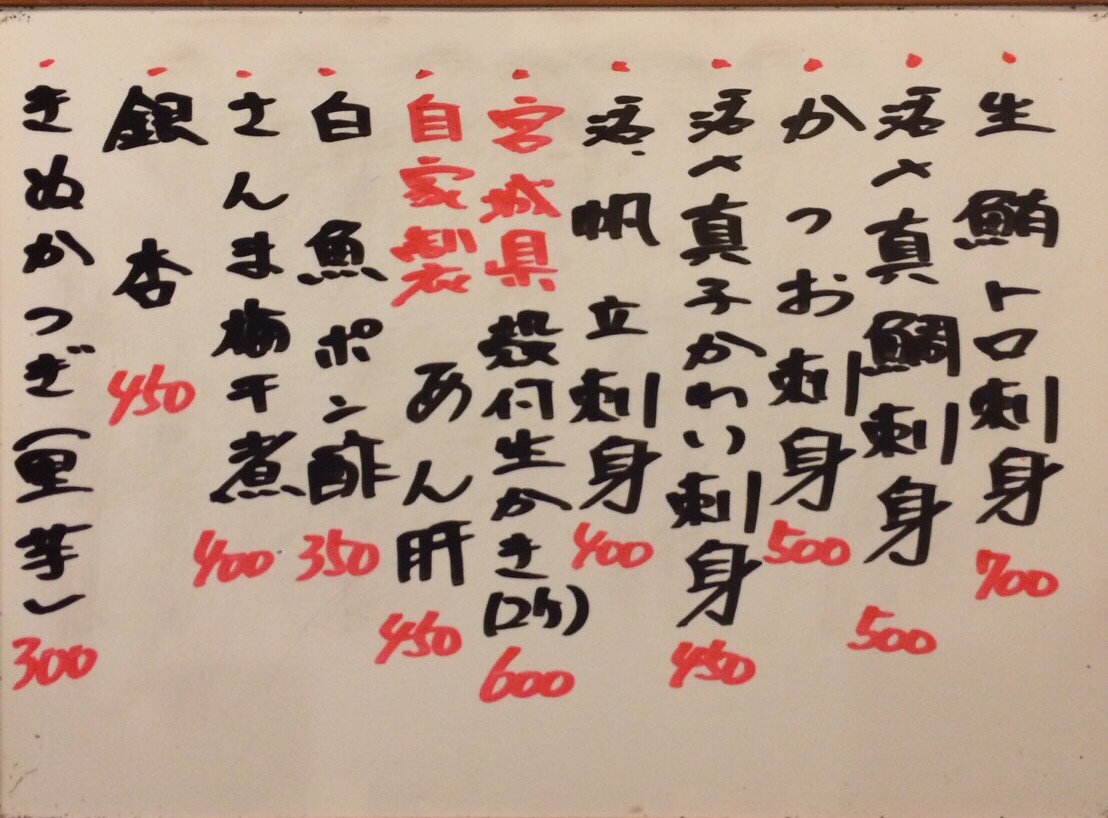 ・生鮪トロ刺身 700
・活〆真鯛刺身 500
・かつお刺身 500
・活〆真子かれい刺身 450
・活帆立刺身 400
・宮城県殻付生かき(2ケ) 600
・自家製あん肝 450
・白魚ポン酢 350
・さんま梅干煮 400
・銀杏 450
・きぬかつぎ(里芋) 300